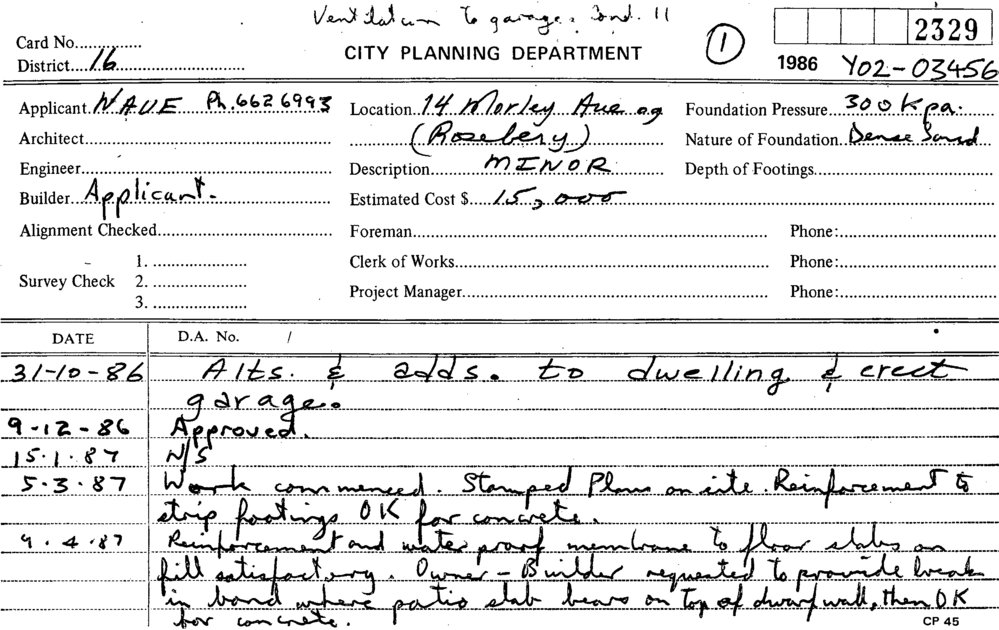 Ventilation to garage. Cond. 11
Card No............... CITY PLANNING DEPARTMENT 1 2329
District....16 1986 Y02-03456
Applicant. NAUE Ph. 662 6993 Location. 14 Morley Ave Foundation Pressure... 300 kpa.
Architect (Rosebery) Nature of Foundation. Dense Sand
Engineer Description MINOR Depth of Footings
Builder. Applicant. Estimated Cost $ 15,000
Alignment Checked Foreman Phone:
1. Clerk of Works Phone:
Survey Check 2.
3. Project Manager Phone:
DATE D.A. No. /
31-10-86 Alts. & adds. to dwelling & erect
garage.
9-12-86 Approved.
15.1.87 N/S
5.3.87 Work commenced. Stamped Plans on site. Reinforcement to
strip footings OK for concrete.
9.4.87 Reinforcement and water proof membrane to floor slabs on
fill satisfactory. Owner-Builder requested to provide break
in bond where patio slab bears on top of dwarf wall, then OK
for concrete. CP 45